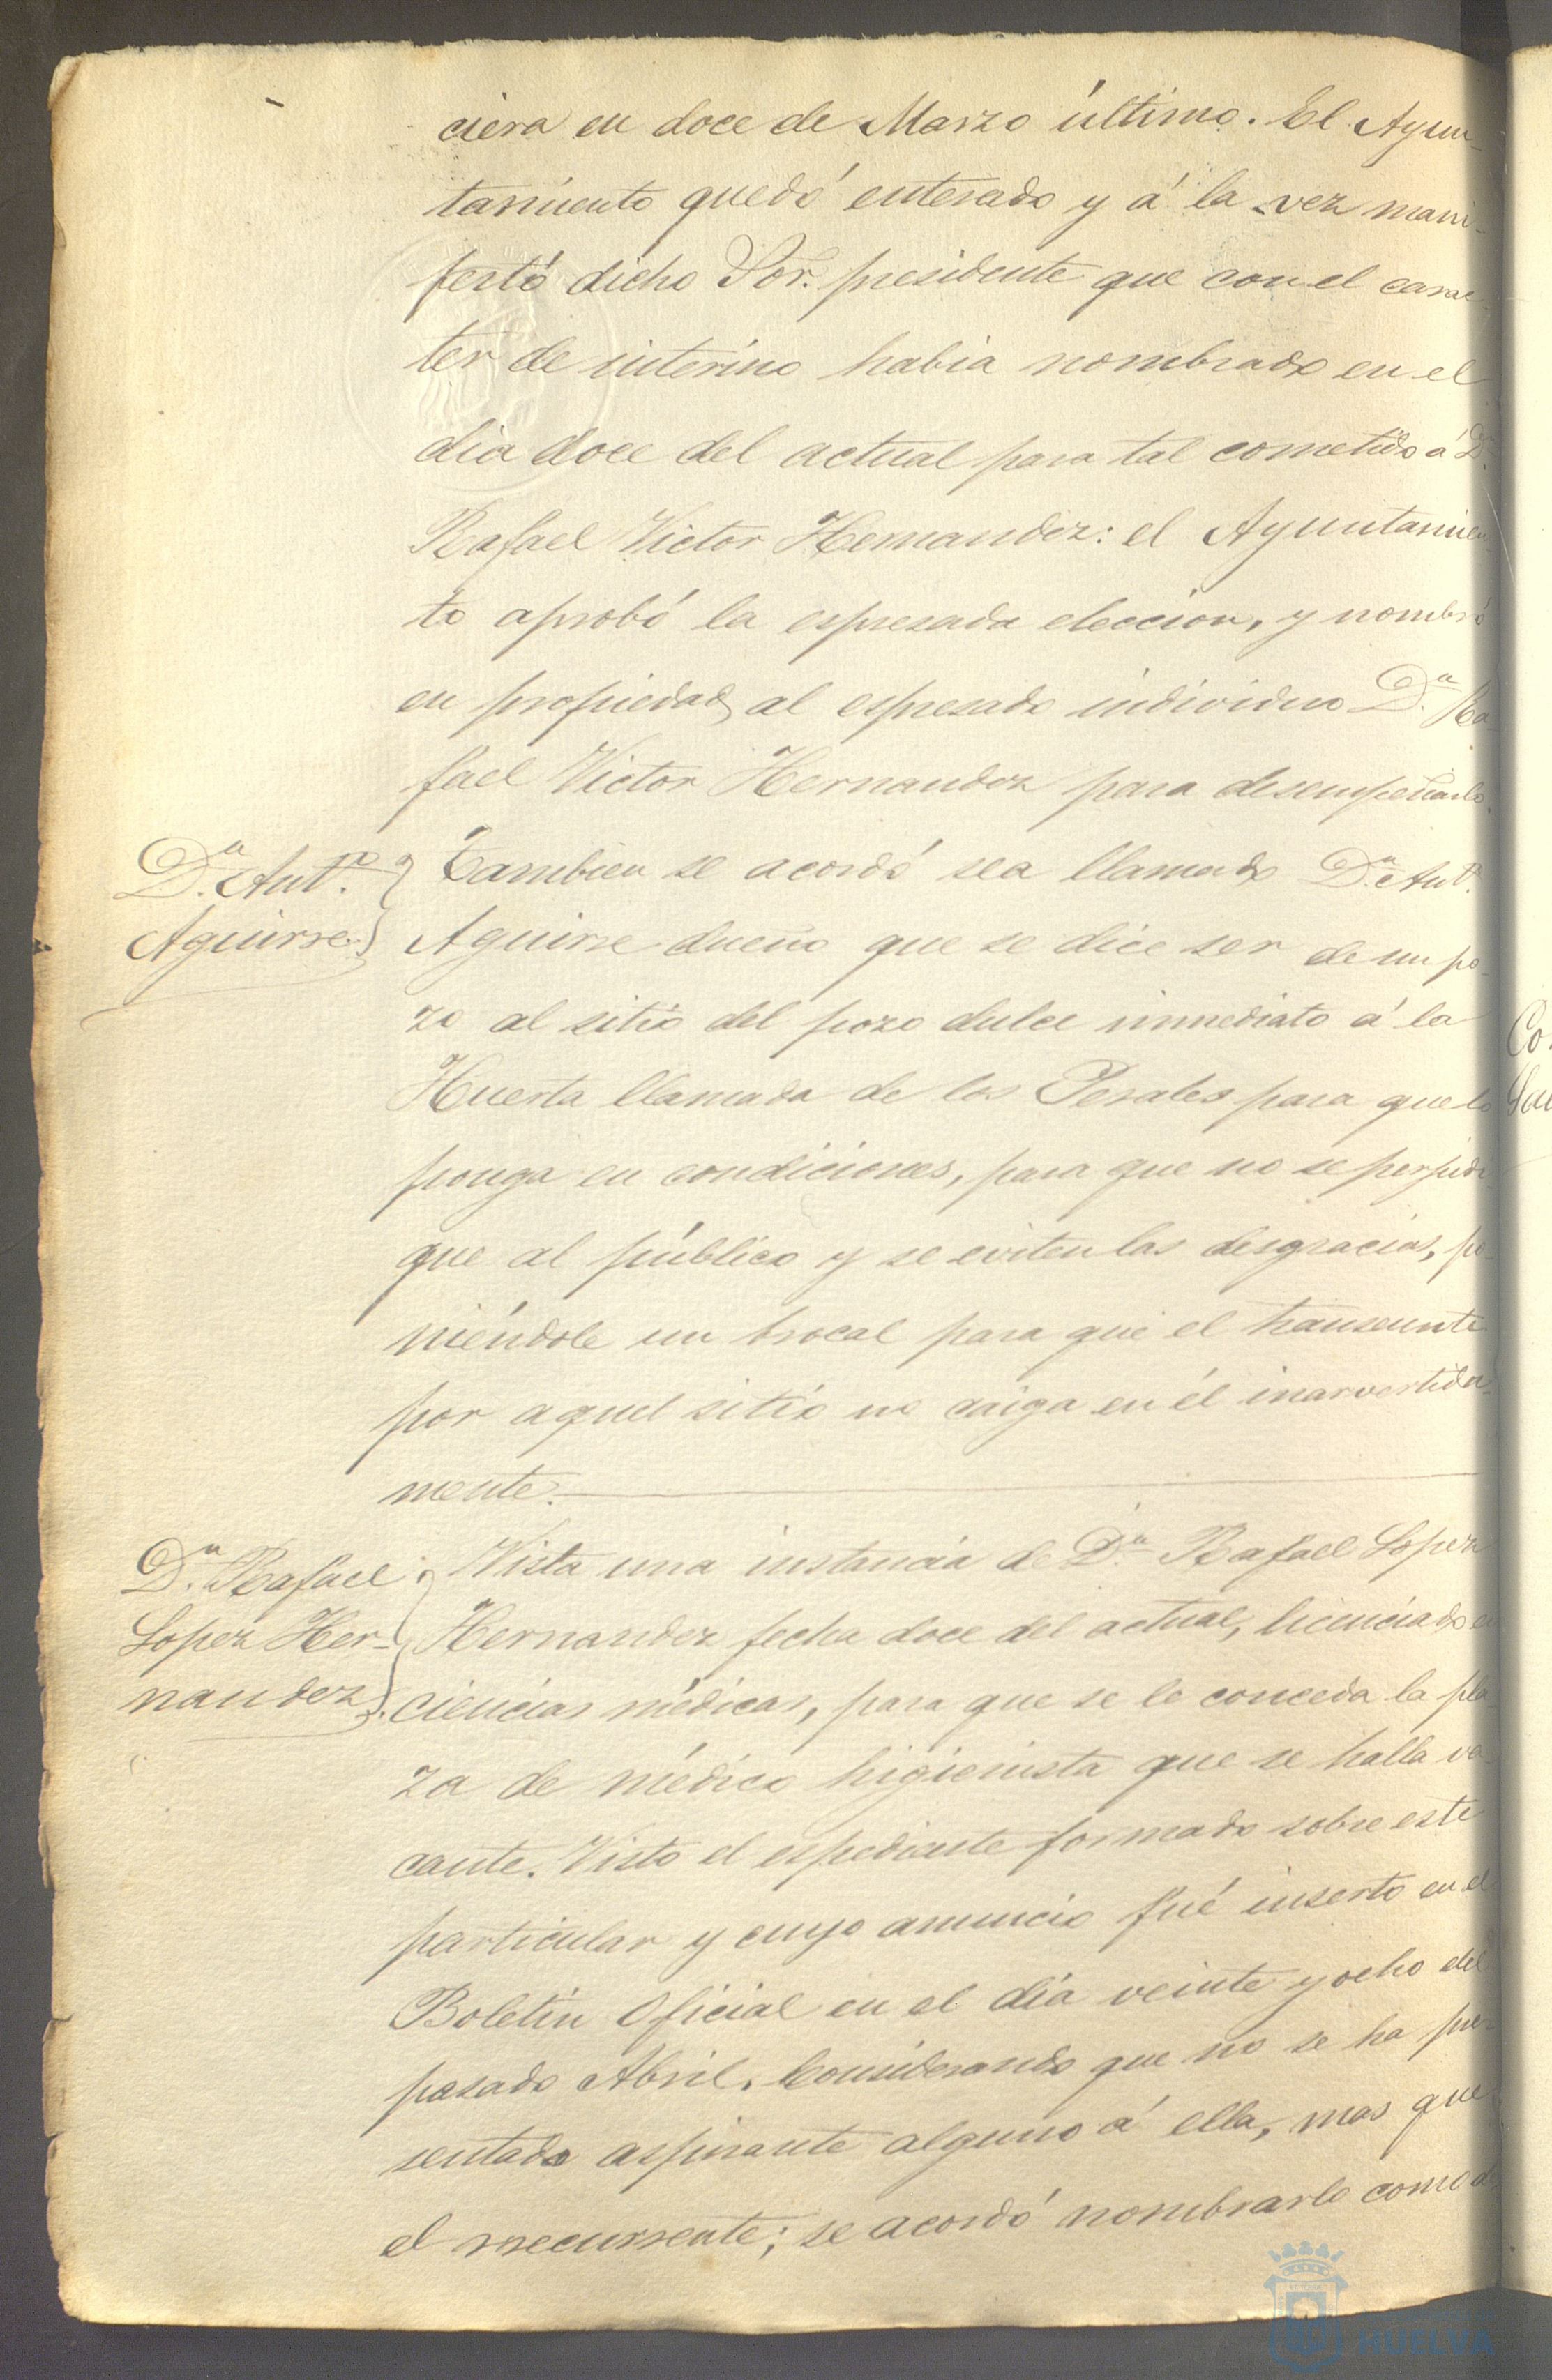 ciera en doce de Marzo último. El Ayun-
tamiento quedó enterado y á la vez mani-
festó dicho Sor. presidente que con el carac-
ter de interino habia nombrado en el
dia doce del actual para tal cometido á Dn.
Rafael Victor Hernandez: el Ayuntamien-
to aprobó la espresada eleccion, y nombró
en propiedad al espresado individuo Dn. Ra-
fael Victor Hernandez para desempeñarlo.
Dn. Antº.
Aguirre
Tambien se acordó sea llamado Dn. Antº.
Aguirre dueño que se dice ser de un po-
zo al sitio del pozo dulce inmediato á la
Huerta llamada de los Perales para que lo
ponga en condiciones, para que no se perjudi
que al público y se eviten las desgracias, po-
niéndole un brocal para que el transeunte
por aquel sitio no caiga en él inarvertida-
mente.
Dn. Rafael
Lopez Her-
nandez
Vista una instancia de Dn. Rafael Lopez
Hernandez fecha doce del actual, licenciado en
ciencias médicas, para que se le conceda la pla
za de médico higienista que se halla va-
cante. Visto el espediente formado sobre este
particular y cuyo anuncio fué inserto en el
Boletin Oficial en el dia veinte y ocho del
pasado Abril. Considerando que no se ha pre-
sentado aspirante alguno á ella, mas que
el rrecurrente; se acordó nombrarlo como
Co.
HUELVA